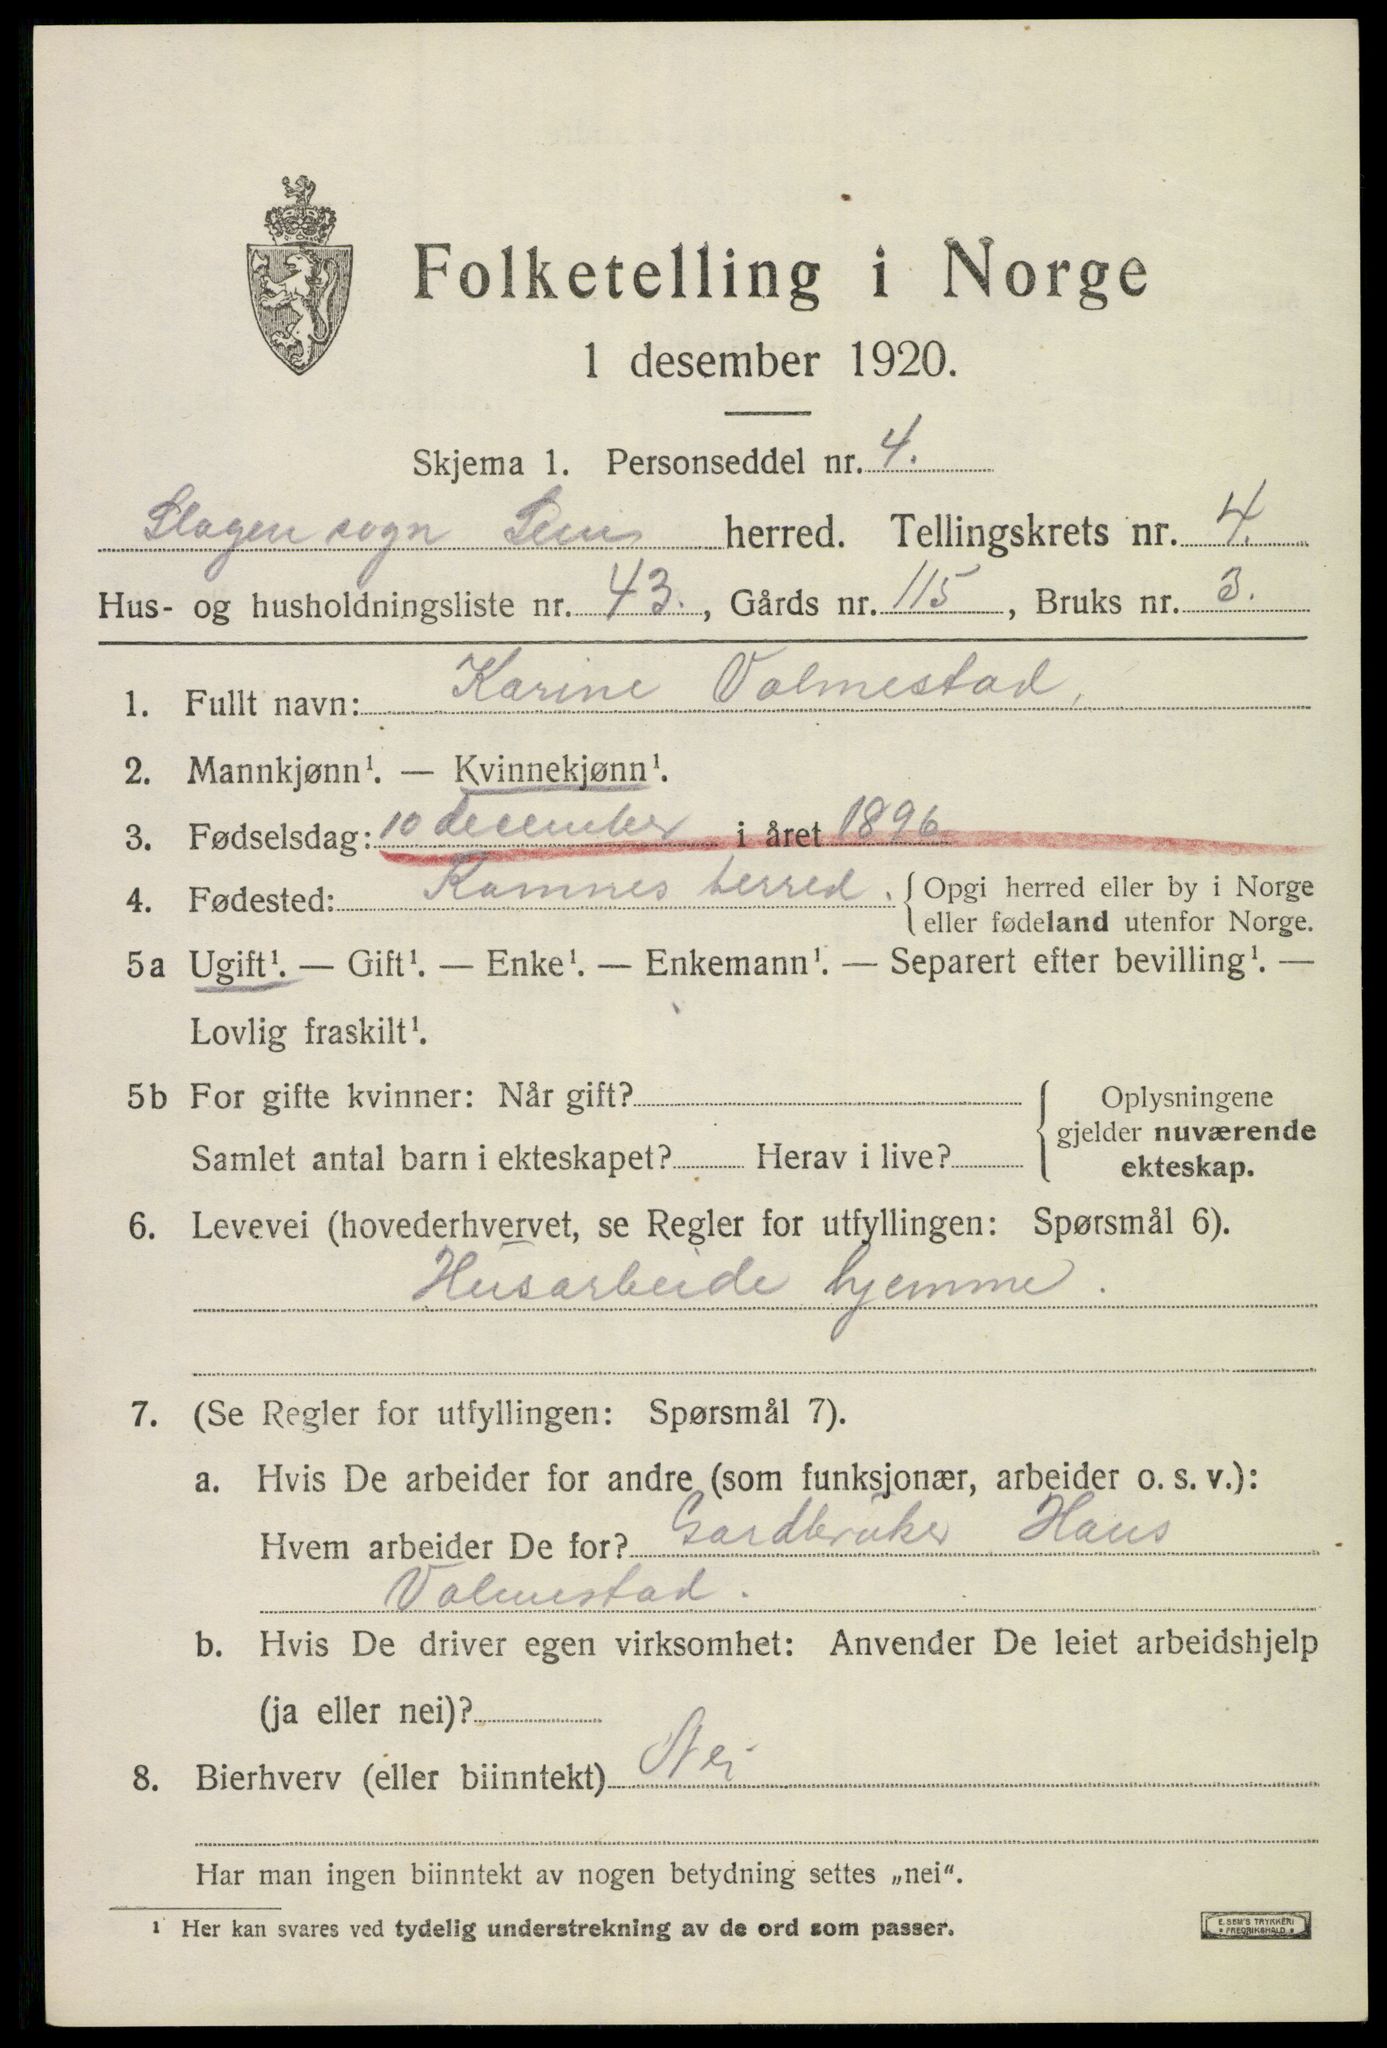 Folketelling i Norge
1 desember 1920.
Skjema 1. Personseddel nr. 4.
Slagen sogn Sem herred. Tellingskrets nr. 4.
Hus- og husholdningsliste nr. 43., Gårds nr. 115, Bruks nr. 3.
1. Fullt navn: Karine Valmestad,
2. Mannkjønn¹. — Kvinnekjønn¹.
3. Fødselsdag: 10 december i året 1896
4. Fødested: Ramnes herred. Opgi herred eller by i Norge
eller fødeland utenfor Norge.
5a Ugift¹. — Gift¹. — Enke¹. — Enkemann¹. — Separert efter bevilling¹. —
Lovlig fraskilt¹.
5b For gifte kvinner: Når gift? Oplysningene
gjelder nuværende
Samlet antal barn i ekteskapet? Herav i live? ekteskap.
6. Levevei (hovederhvervet, se Regler for utfyllingen: Spørsmål 6).
Husarbeide hjemme.
7. (Se Regler for utfyllingen: Spørsmål 7).
a. Hvis De arbeider for andre (som funksjonær, arbeider o. s. v.):
Hvem arbeider De for? Gardbruker Hans
Valmestad.
b. Hvis De driver egen virksomhet: Anvender De leiet arbeidshjelp
(ja eller nei)?
8. Bierhverv (eller biinntekt) Nei
Har man ingen biinntekt av nogen betydning settes „nei“.
¹ Her kan svares ved tydelig understrekning av de ord som passer.
E. SEM'S TRYKKERI
FREDRIKSHALD